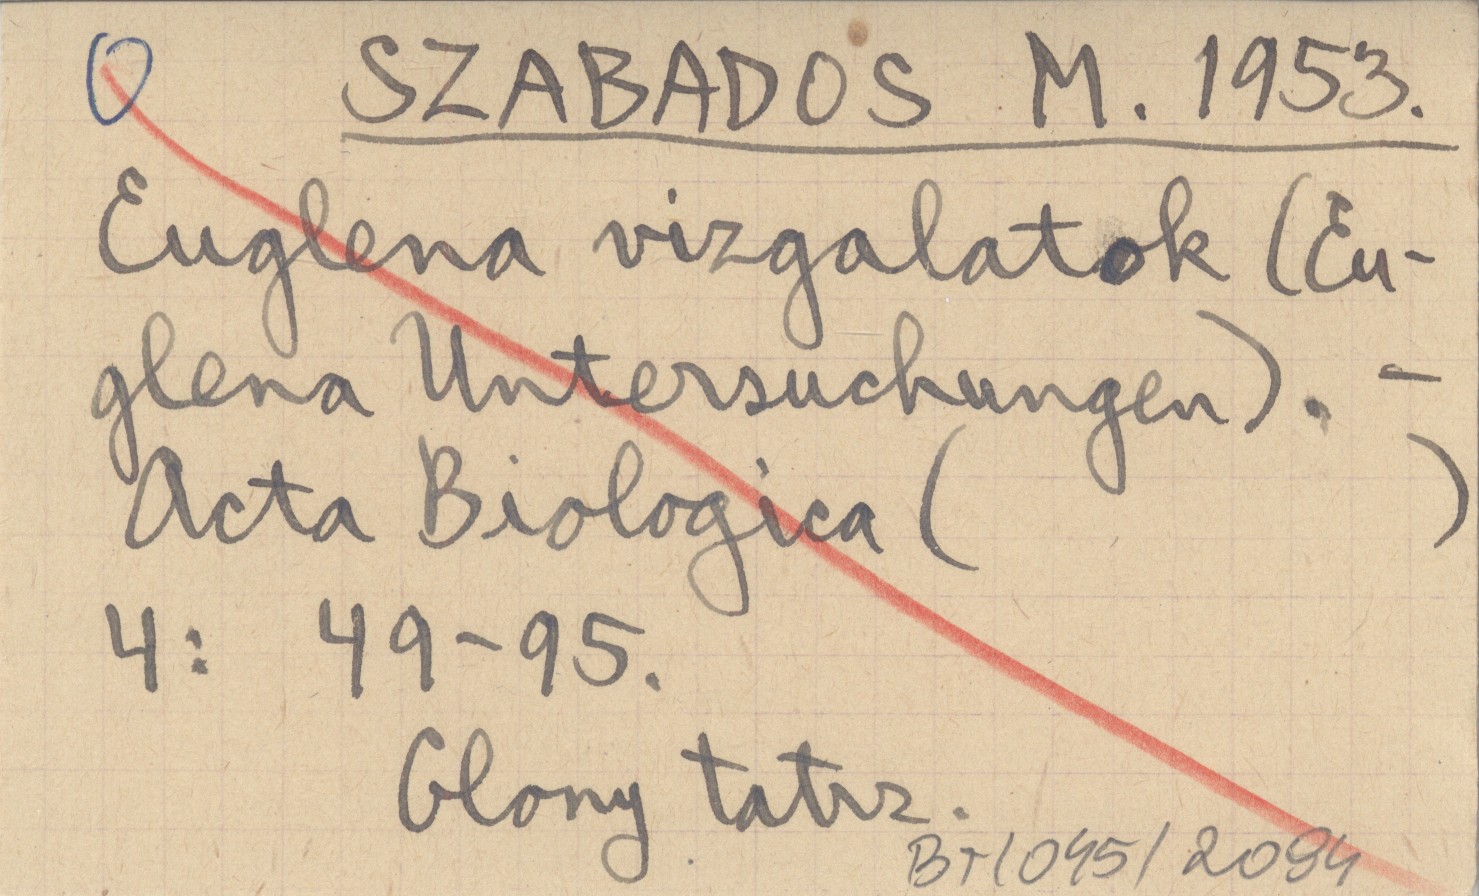 0 SZABADOS M. 1953.
Euglena vizgalatok (Eu-
glena Untersuchungen). -
Acta Biologica ( )
4: 49-95.
Glony tatrz.
BT/045/2094